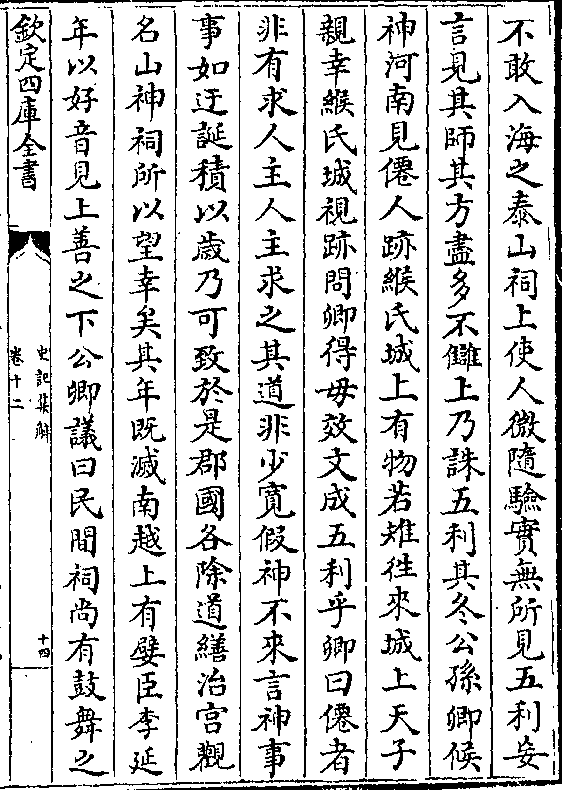 不敢入海之泰山祠上使人微隨驗實無所見五利妄
言見其師其方盡多不讎上乃誅五利其冬公孫卿候
神河南見僊人跡緱氏城上有物若雉徃來城上天子
親幸緱氏城視跡問卿得毋效文成五利乎卿曰僊者
非有求人主人主求之其道非少寛假神不來言神事
事如迂誕積以歲乃可致於是郡國各除道繕治宫觀
名山神祠所以望幸矣其年既滅南越上有嬖臣李延
年以好音見上善之下公卿議曰民間祠尚有鼓舞之
欽定四庫全書
史記集解
卷十二
十四